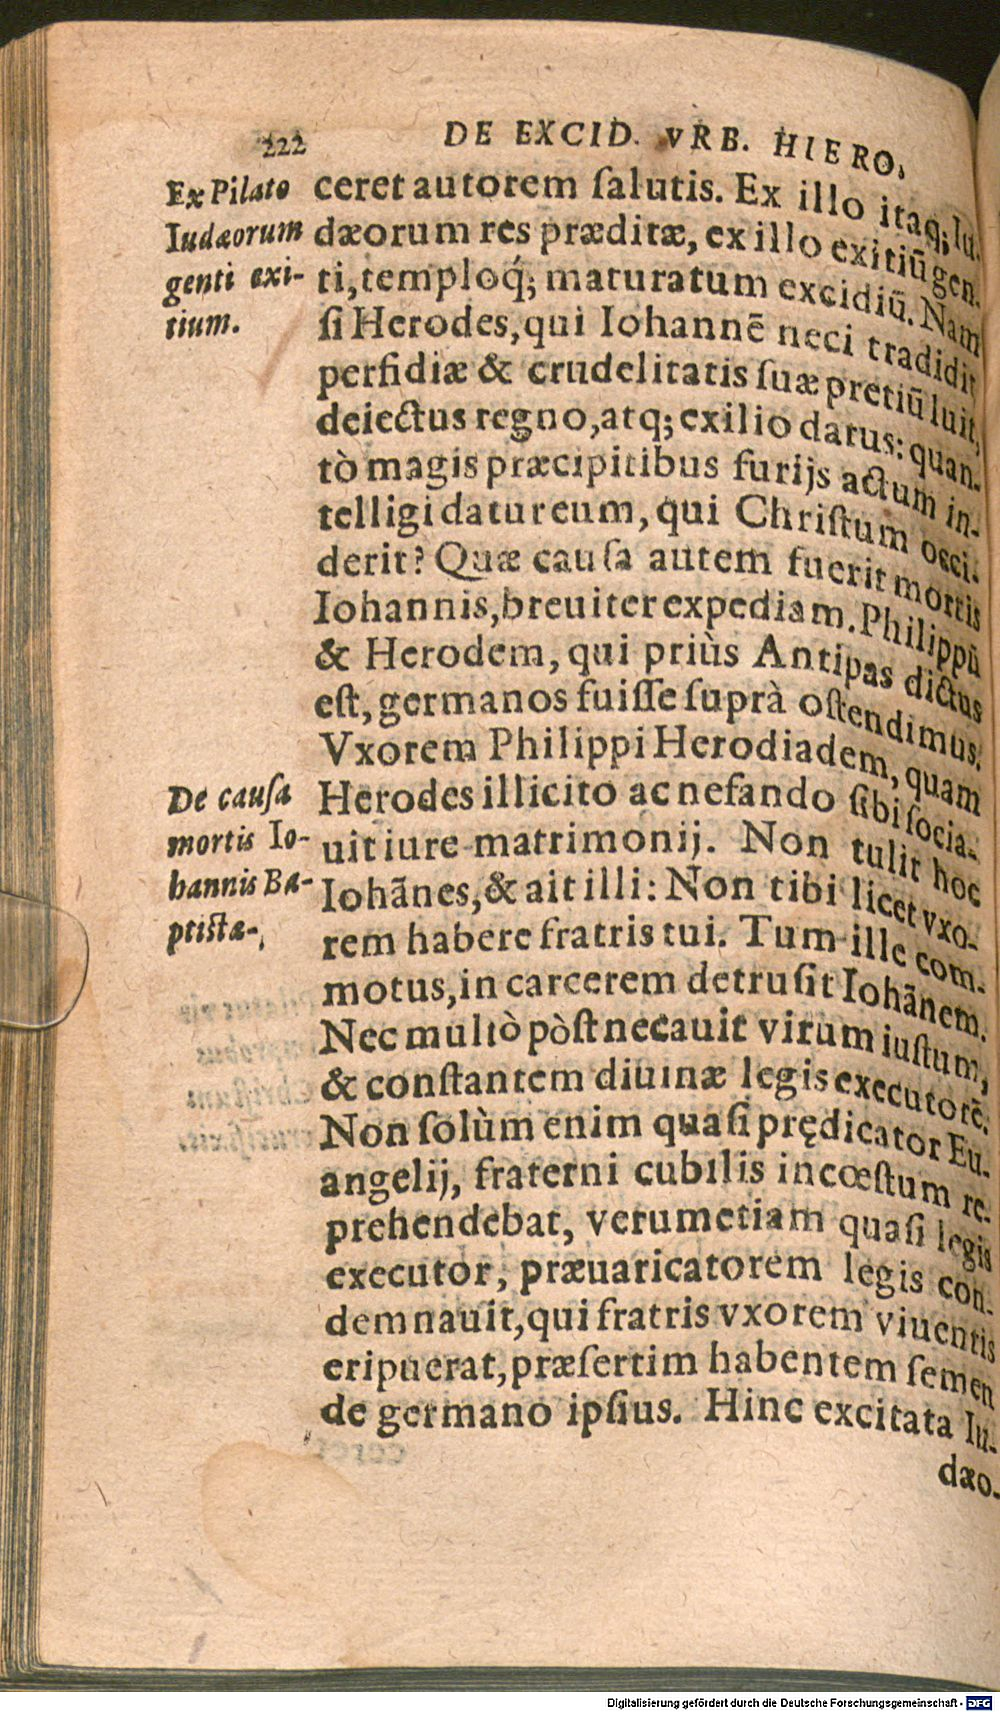 222
DE EXCID. VRB. HIERO.
Ex Pilato
Iudæorum
genti exi-
tium.
ceret autorem ſalutis. Ex illo itaq; Iu-
dæorum res præditæ, ex illo exitiū gen-
ti, temploq́; maturatum excidiū. Nam
ſi Herodes, qui Iohannē neci tradidit
perfidiæ & crudelitatis ſuæ pretiū luit,
deiectus regno, atq; exilio datus: quan-
tò magis præcipitibus furijs actum in-
telligi datur eum, qui Chriſtum occi-
derit? Quæ cauſa autem fuerit mortis
Iohannis, breuiter expediam. Philippū
& Herodem, qui priùs Antipas dictus
eſt, germanos fuiſſe ſuprà oſtendimus.
Vxorem Philippi Herodiadem, quam
De cauſa
mortis Io-
hannis Ba-
ptiſtæ.
Herodes illicito ac nefando ſibi ſocia-
uit iure matrimonij. Non tulit hoc
Iohānes, & ait illi: Non tibi licet vxo-
rem habere fratris tui. Tum ille com-
motus, in carcerem detruſit Iohānem.
Nec multò pòſt necauit virum iuſtum,
& conſtantem diuinæ legis executorē.
Non ſolùm enim quaſi prędicator Eu-
angelij, fraterni cubilis incœſtum re-
prehendebat, verumetiam quaſi legis
executor, præuaricatorem legis con-
demnauit, qui fratris vxorem viuentis
eripuerat, præſertim habentem ſemen
de germano ipſius. Hinc excitata Iu-
dæo-
Digitalisierung gefördert durch die Deutsche Forschungsgemeinschaft - DFG